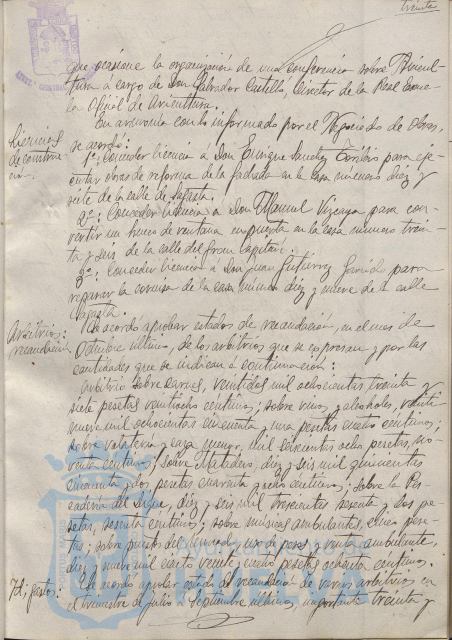 treinta
que ocasione la organización de una conferencia sobre Avicul-
tura á cargo de Don Salvador Castelló, Director de la Real Escue-
la Oficial de Avicultura.
En armonía con lo informado por el Negociado de Obras,
se acordó:
Licencias
de construc-
ción.
1º: Conceder licencia á Don Enrique Sanchez para eje-
cutar obras de reforma de la fachada en la casa número diez y
siete de la calle de Sagasta.
2º: Conceder licencia á Don Manuel Vizcaya para con-
vertir un hueco de ventana en puerta en la casa número trein-
ta y seis de la calle del Gran Capitán.
3º: Conceder licencia á Don Juan Gutiérrez Garrido para
reparar la cornisa de la casa número diez y nueve de la calle
Sagasta.
Arbitrios:
recaudación
Se acordó aprobar estados de recaudación, en el mes de
Octubre último, de los arbitrios que se expresan y por las
cantidades que se indican á continuación:
Arbitrio sobre carnes, veintidos mil ochocientas treinta y
siete pesetas veintiocho centimos; sobre vinos y alcoholes, veinti-
nueve mil ochocientas cincuenta y una pesetas centimos;
sobre volatería y caza menor, mil seiscientas ocho pesetas, no-
venta centimos; sobre Matadero, diez y seis mil quinientas
cincuenta y dos pesetas cuarenta y ocho centimos; sobre la Pes-
cadería del diez y seis mil trescientas sesenta y dos pe-
setas, sesenta centimos; sobre músicas ambulantes, cinco pese-
tas; sobre puestos del mercado, uso de pesas y ventas ambulante,
diez y nueve mil ciento veinte y pesetas ochenta centimos.
Id; gastos:
Se acordó aprobar estado de recaudación de varios arbitrios en
el trimestre de Julio á Septiembre último, importante treinta y
Ayuntamiento de
HUELVA